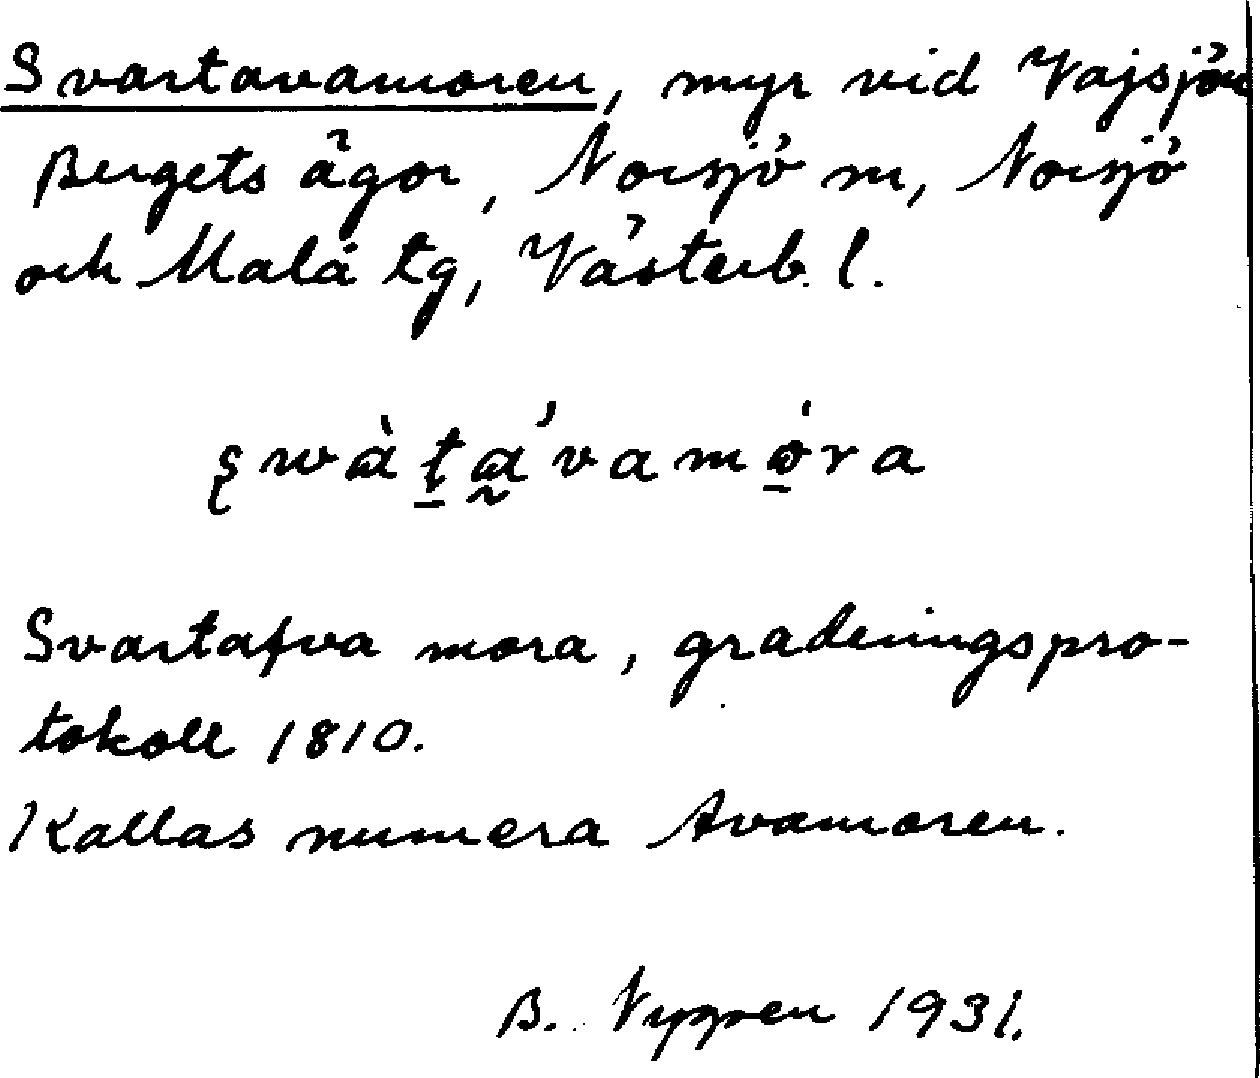 Svartavamoren, myr vid Vajsjön
Bergets ägor, Norsjö sn, Norsjö
och Malå tg, Västerb. l.
Svartafva mora, graderingspro-
tokoll 1810.
Kallas numera Avamoren.
B. Nygren 1931.